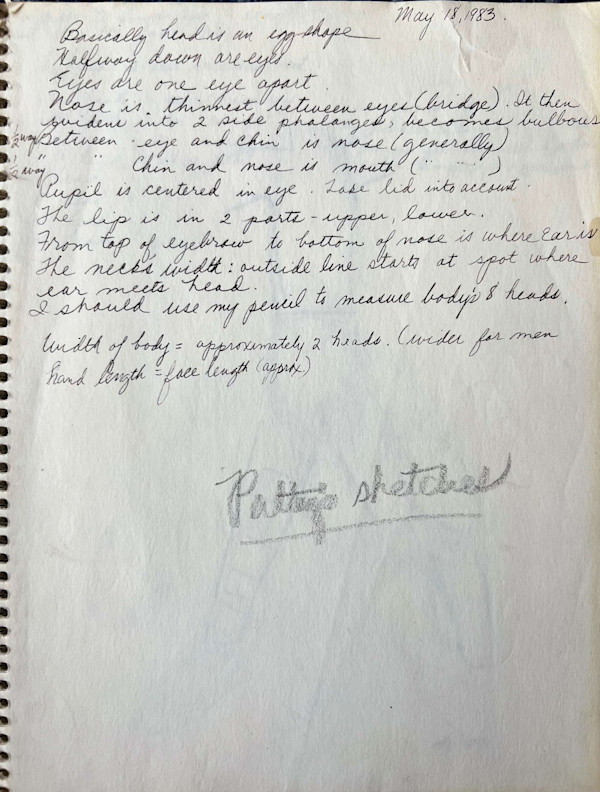 May 18, 1983.
Basically head is an egg shape
Halfway down are eyes.
Eyes are one eye apart.
Nose is thinnest between eyes (bridge). It then
widens into 2 side phalanges, becomes bulbous
½ way Between eye and chin is nose (generally)
½ way " " Chin and nose is mouth (" ")
Pupil is centered in eye. Take lid into account.
The lip is in 2 parts - upper, lower.
From top of eyebrow to bottom of nose is where Ear is
The neck's width: outside line starts at spot where
ear meets head.
I should use my pencil to measure body's 8 heads.
Width of body = approximately 2 heads. (wider for men
hand length = face length (approx)
Patty's sketches